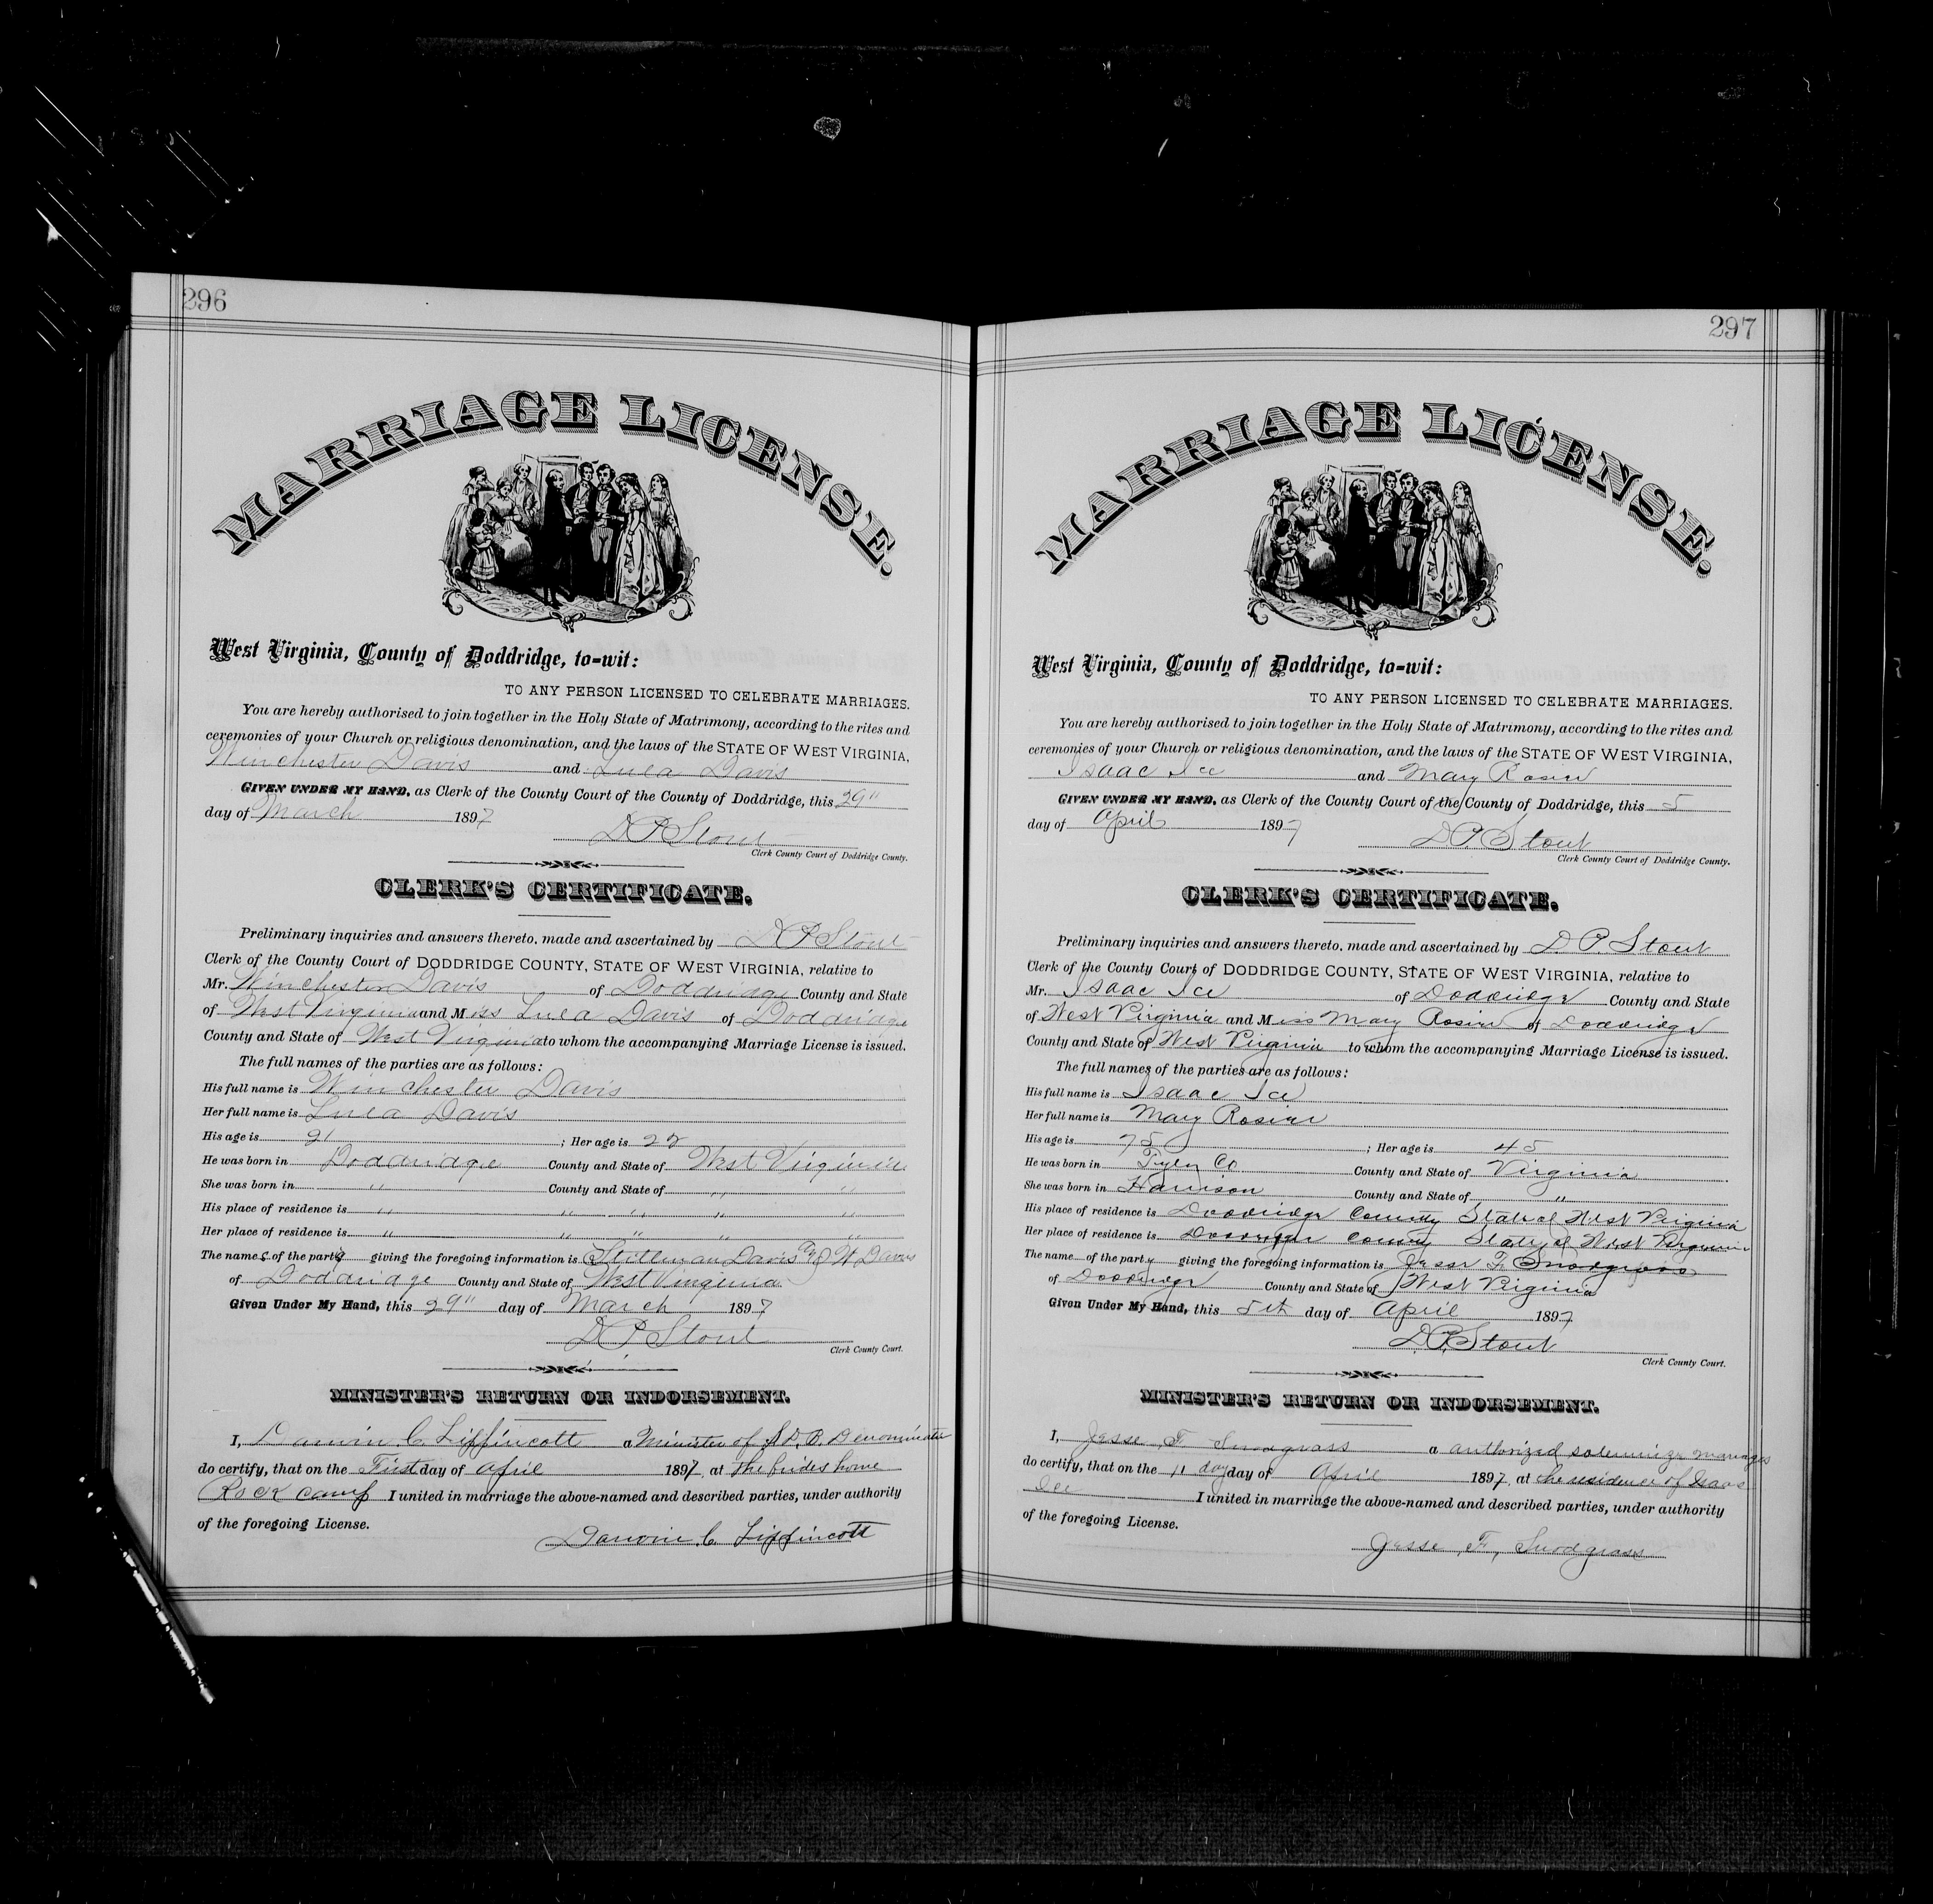 296
MARRIAGE LICENSE.
West Virginia, County of Doddridge, to=wit:
TO ANY PERSON LICENSED TO CELEBRATE MARRIAGES.
You are hereby authorised to join together in the Holy State of Matrimony, according to the rites and
ceremonies of your Church or religious denomination, and the laws of the STATE OF WEST VIRGINIA,
Winchester Davis and Lula Davis
GIVEN UNDER MY HAND, as Clerk of the County Court of the County of Doddridge, this 29"
day of March 1897
D P Stout
Clerk County Court of Doddridge County.
CLERK'S CERTIFICATE.
Preliminary inquiries and answers thereto, made and ascertained by D P Stout
Clerk of the County Court of DODDRIDGE COUNTY, STATE OF WEST VIRGINIA, relative to
Mr. Winchester Davis of Doddridge County and State
of West Virginia and Miss Lula Davis of Doddridge
County and State of West Virginia to whom the accompanying Marriage License is issued.
The full names of the parties are as follows:
His full name is Winchester Davis
Her full name is Lula Davis
His age is 21 ; Her age is 22
He was born in Doddridge County and State of West Virginia
She was born in " County and State of " "
His place of residence is " " " " "
Her place of residence is " " " " "
The names of the party giving the foregoing information is Stillman Davis & J W Davis
of Doddridge County and State of West Virginia
Given Under My Hand, this 29" day of March 1897
D P Stout
Clerk County Court.
MINISTER'S RETURN OR INDORSEMENT.
I, Darwin C. Lippincott a Minister of S.D.B. Denomination
do certify, that on the First day of April 1897, at The brides home
Rock Camp I united in marriage the above-named and described parties, under authority
of the foregoing License.
Darwin C. Lippincott
297
MARRIAGE LICENSE.
West Virginia, County of Doddridge, to=wit:
TO ANY PERSON LICENSED TO CELEBRATE MARRIAGES.
You are hereby authorised to join together in the Holy State of Matrimony, according to the rites and
ceremonies of your Church or religious denomination, and the laws of the STATE OF WEST VIRGINIA,
Isaac Ice and Mary Rosier
GIVEN UNDER MY HAND, as Clerk of the County Court of the County of Doddridge, this 5
day of April 1897
D. P. Stout
Clerk County Court of Doddridge County.
CLERK'S CERTIFICATE.
Preliminary inquiries and answers thereto, made and ascertained by D. P. Stout
Clerk of the County Court of DODDRIDGE COUNTY, STATE OF WEST VIRGINIA, relative to
Mr. Isaac Ice of Doddridge County and State
of West Virginia and Miss Mary Rosier of Doddridge
County and State of West Virginia to whom the accompanying Marriage License is issued.
The full names of the parties are as follows:
His full name is Isaac Ice
Her full name is Mary Rosier
His age is 75 ; Her age is 45
He was born in Tyler Co County and State of Virginia
She was born in Harrison County and State of "
His place of residence is Doddridge County State of West Virginia
Her place of residence is Doddridge County State of West Virginia
The name of the party giving the foregoing information is Jesse F. Snodgrass
of Doddridge County and State of West Virginia
Given Under My Hand, this 5th day of April 1897
D. P. Stout
Clerk County Court.
MINISTER'S RETURN OR INDORSEMENT.
I, Jesse F. Snodgrass a authorized solemnize marriages
do certify, that on the 11 day day of April 1897, at the residence of Isaac
Ice I united in marriage the above-named and described parties, under authority
of the foregoing License.
Jesse, F, Snodgrass